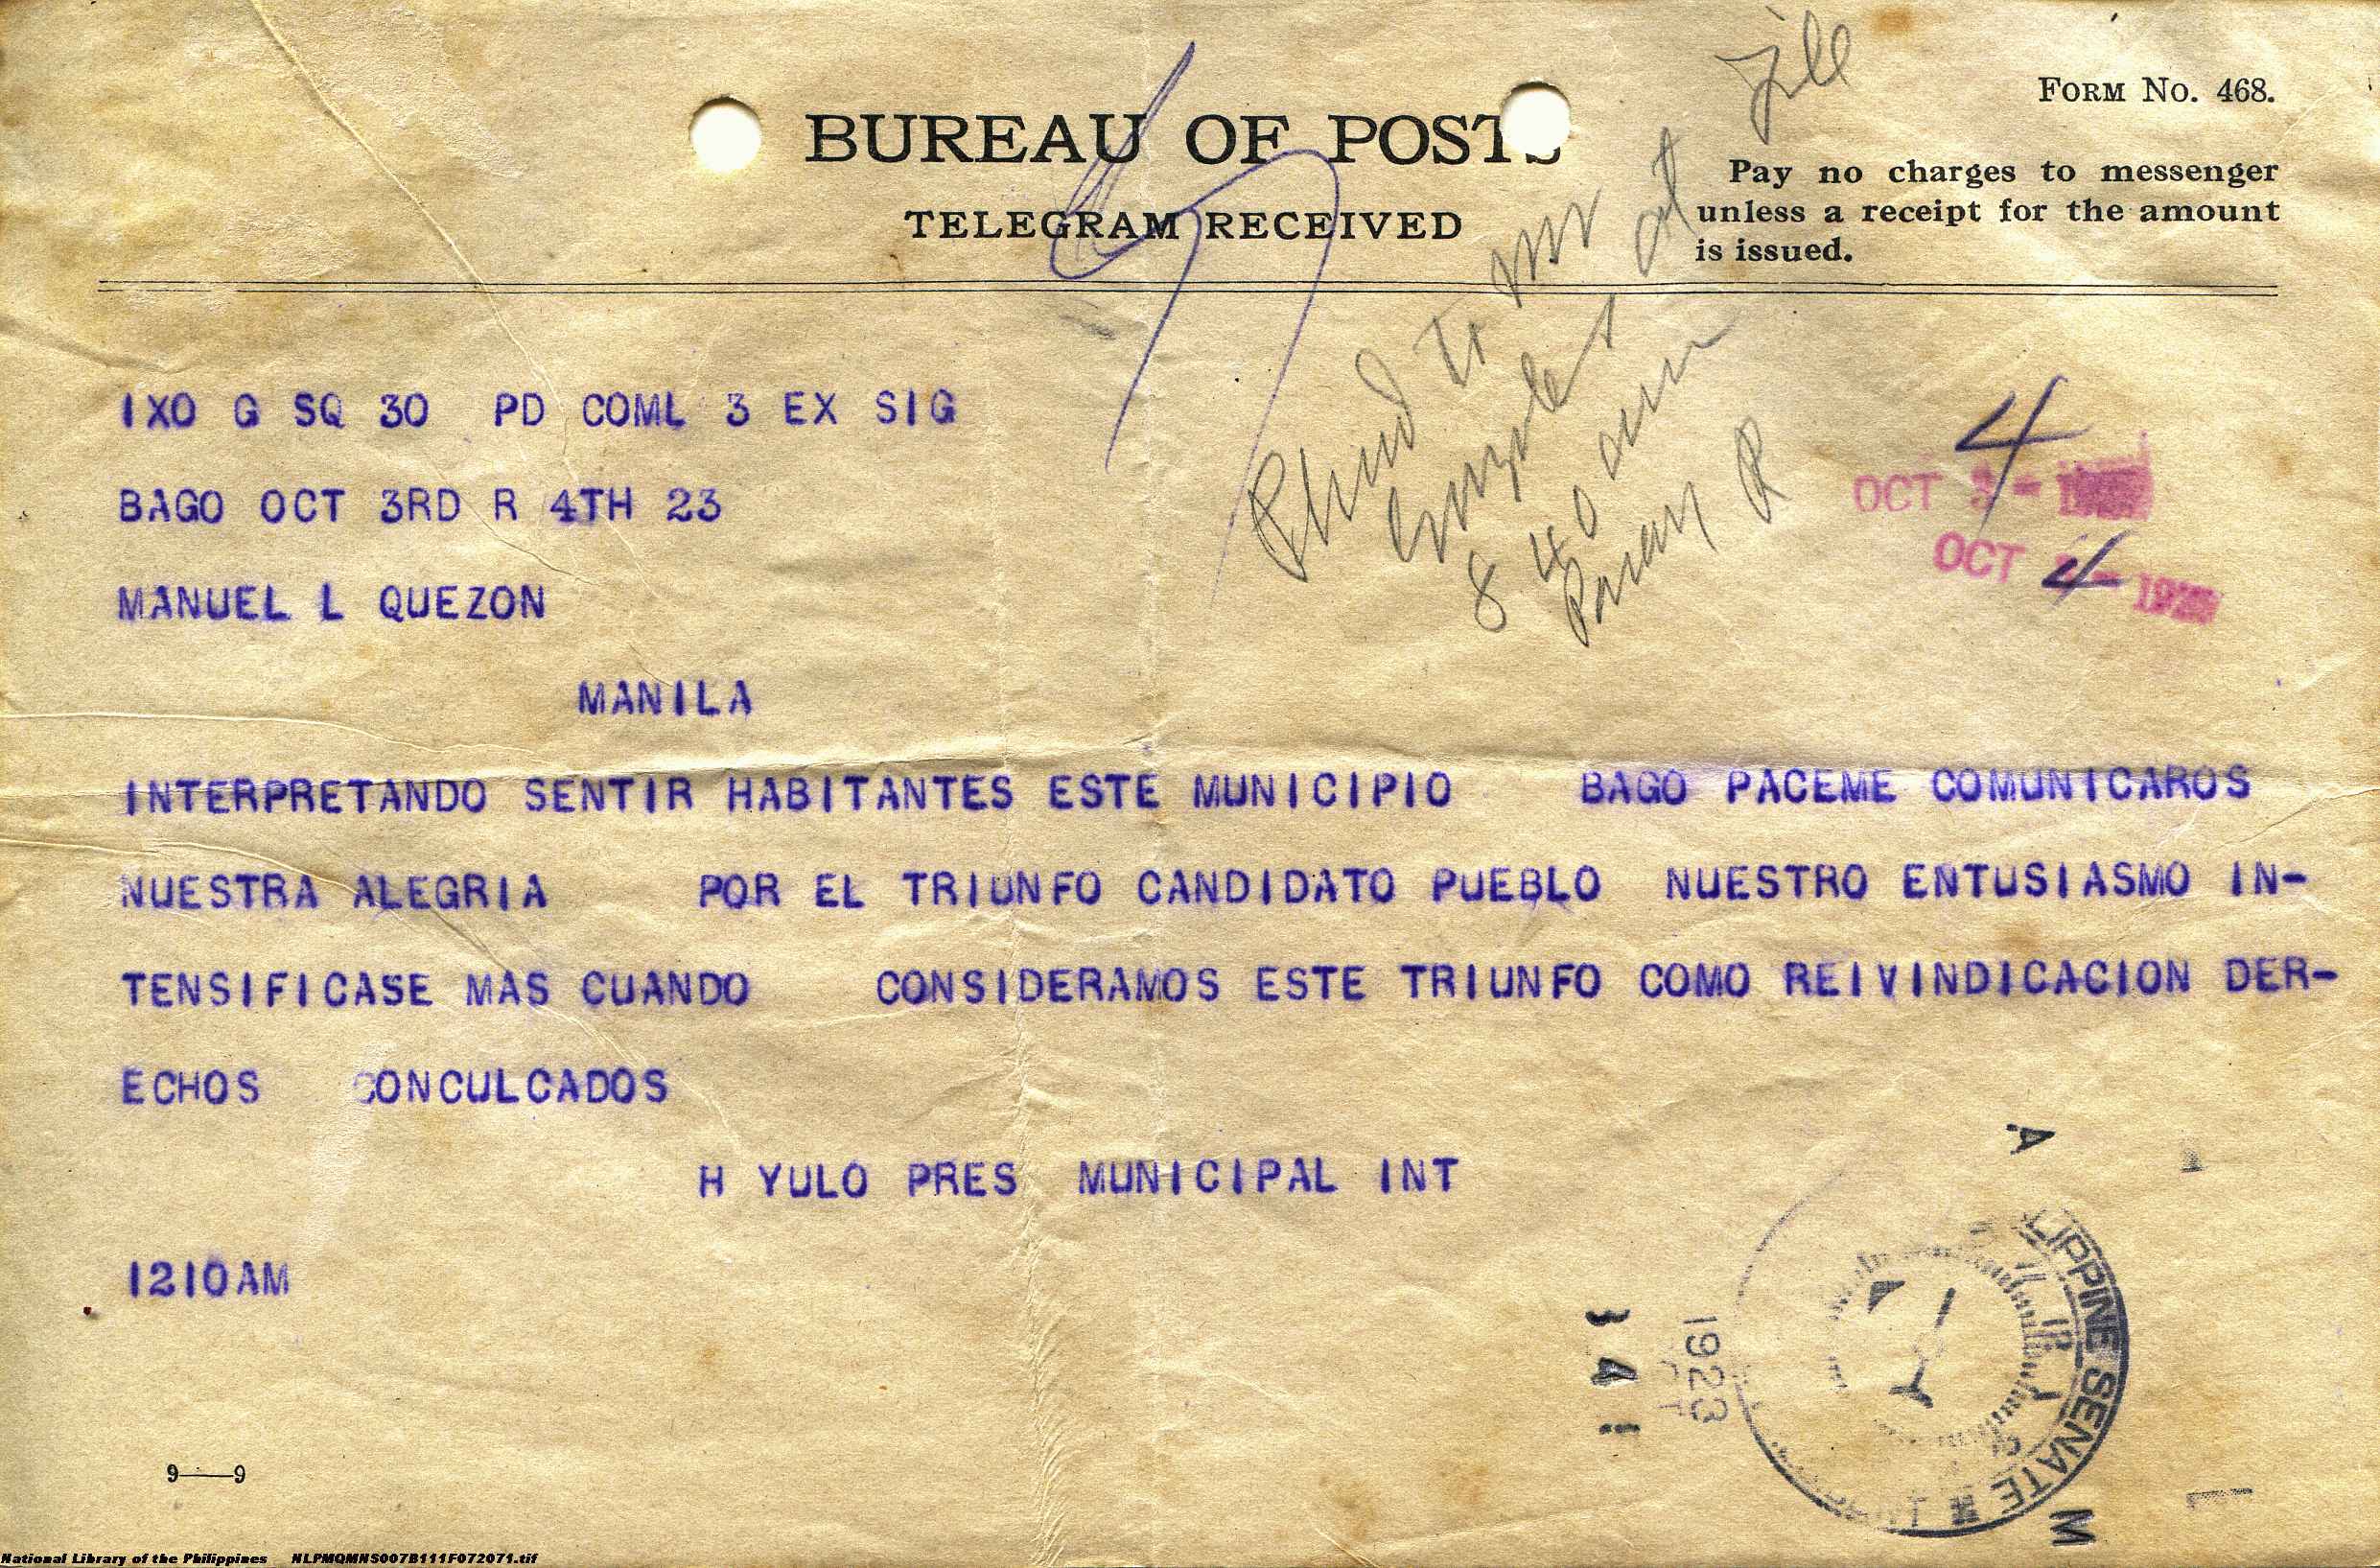 File
FORM NO. 468.
BUREAU OF POSTS
Pay no charges to messenger
unless a receipt for the amount
is issued.
TELEGRAM RECEIVED
Phnd to Mr
at
8 40 am
IXO G SQ 30 PD COML 3 EX SIG
4
OCT
BAGO OCT 3RD R 4TH 23
OCT 4 - 192
MANUEL L QUEZON
MANILA
INTERPRETANDO SENTIR HABITANTES ESTE MUNICIPIO BAGO PACEME COMUNICAROS
NUESTRA ALEGRIA POR EL TRIUNFO CANDIDATO PUEBLO NUESTRO ENTUSIASMO IN-
TENSIFICASE MAS CUANDO CONSIDERAMOS ESTE TRIUNFO COMO REIVINDICACION DER-
ECHOS CONCULCADOS
H YULO PRES MUNICIPAL INT
1210AM
A
M
LIPPINE SENATE
1923
4
9—9
National Library of the Philippines NLPMQMNS007B111F072071.tif